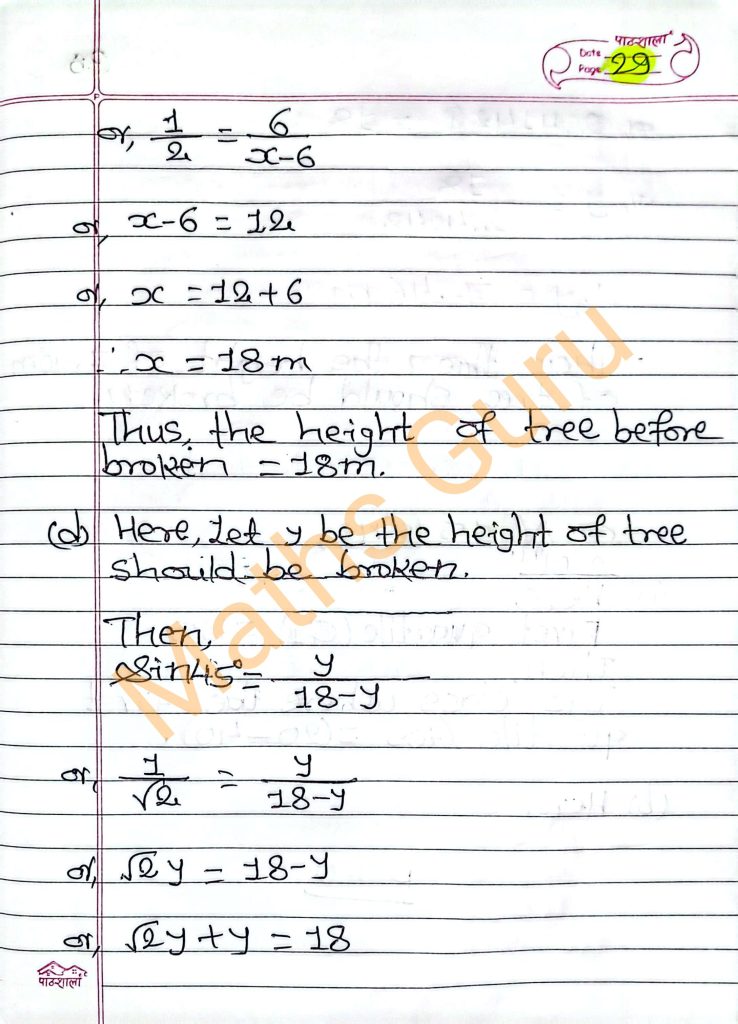 पाठशाला
Date
Page 29
or, 1/2 = 6/(x-6)
or, x-6 = 12
or, x = 12+6
∴ x = 18m
Thus, the height of tree before
broken = 18m.
(d) Here, Let y be the height of tree
should be broken.
Then,
Sin45° = y/(18-y)
or, 1/√2 = y/(18-y)
or, √2y = 18-y
or, √2y + y = 18
पाठशाला
Maths Guru